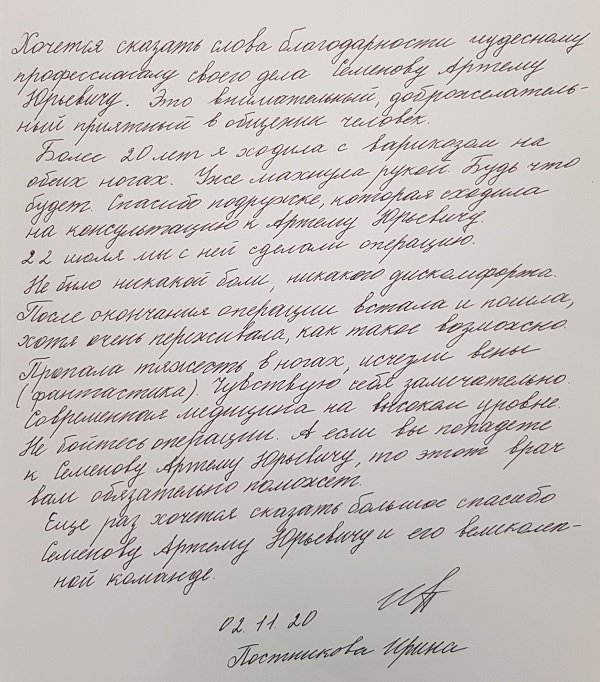 Хочется сказать слова благодарности чудесному
профессионалу своего дела Семенову Артему
Юрьевичу. Это внимательный, доброжелатель-
ный приятный в общении человек.
Более 20 лет я ходила с варикозом на
обеих ногах. Уже махнула рукой. Будь что
будет. Спасибо подружке, которая сходила
на консультацию к Артему Юрьевичу.
22 июля мы с ней сделали операцию.
Не было никакой боли, никакого дискомфорта.
После окончания операции встала и пошла,
хотя очень переживала, как такое возможно.
Пропала тяжесть в ногах, исчезли вены
(фантастика). Чувствую себя замечательно.
Современная медицина на высоком уровне.
Не бойтесь операции. А если вы попадете
к Семенову Артему Юрьевичу, то этот врач
вам обязательно поможет.
Еще раз хочется сказать большое спасибо
Семенову Артему Юрьевичу и его великолеп-
ной команде.
02.11.20
Постникова Ирина